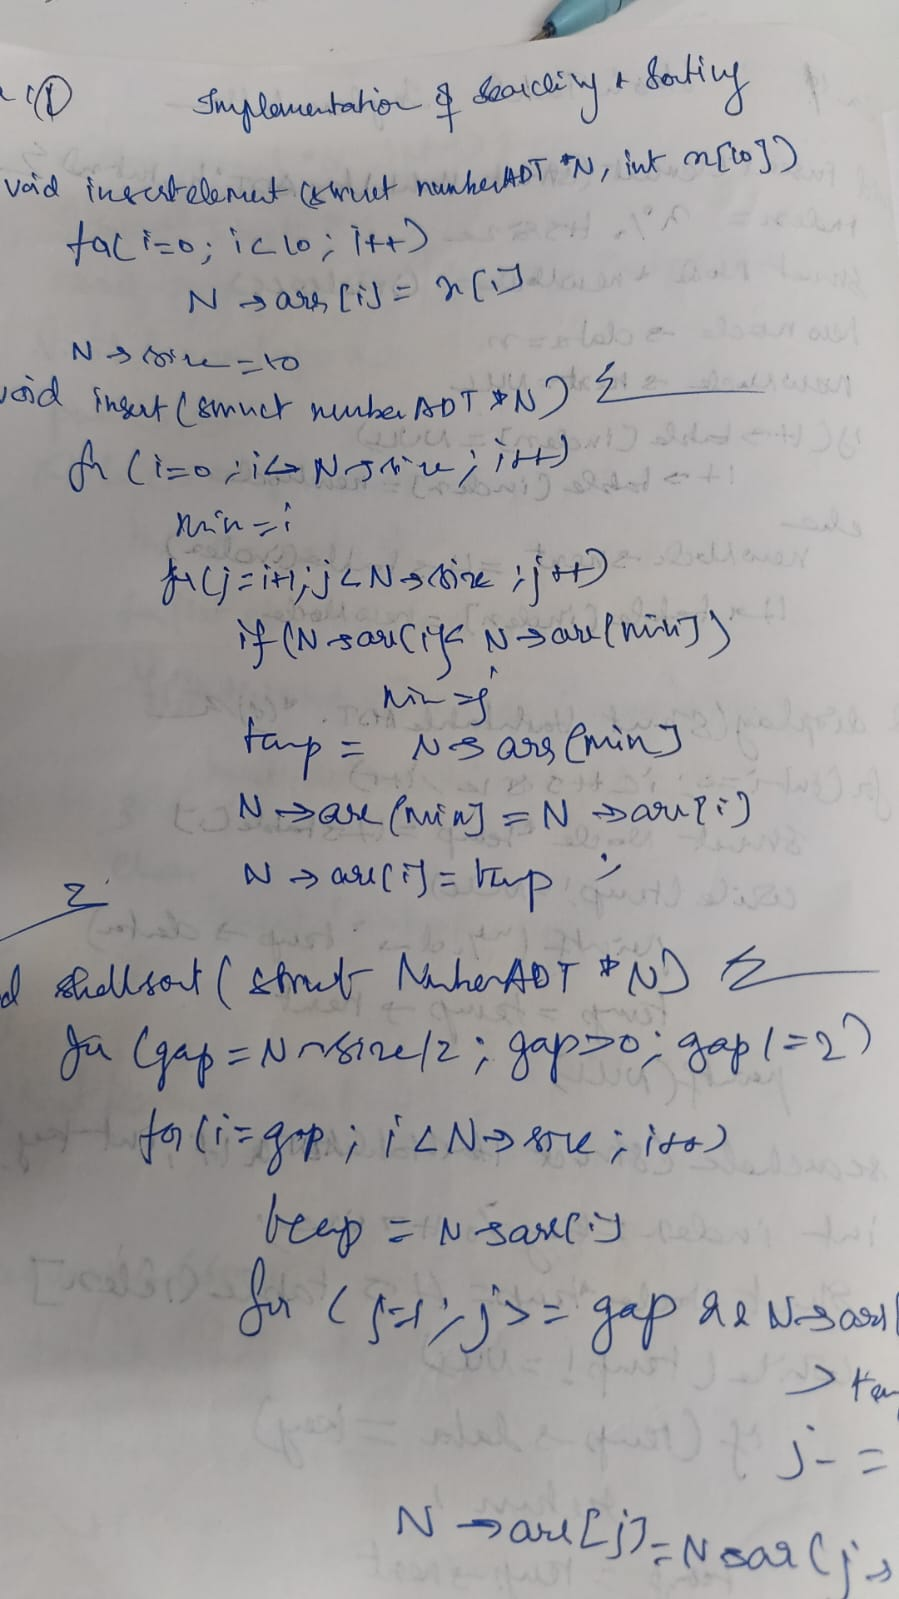 Implementation of Searching & Sorting
void insertelement (struct numberADT *N, int x[10])
for( i=0; i<10; i++)
N → arr [i] = x[i]
N → size = 10
void insert (struct number ADT *N) {
for (i=0; i< N→size; i++)
min = i
for(j=i+1; j<N→size ; j++)
if (N→arr[j]< N→arr[min])
min = j
temp = N→ arr [min]
N →arr [min] = N →arr[i]
N → arr[i] = temp ;
shellsort ( struct NumberADT *N) {
for (gap = N→size/2 ; gap>0; gap /=2)
for (i = gap ; i < N→ size ; i++)
temp = N→arr[i]
for ( j=i ; j >= gap && N→arr[
>
j- =
N →arr[j] = N→arr[j